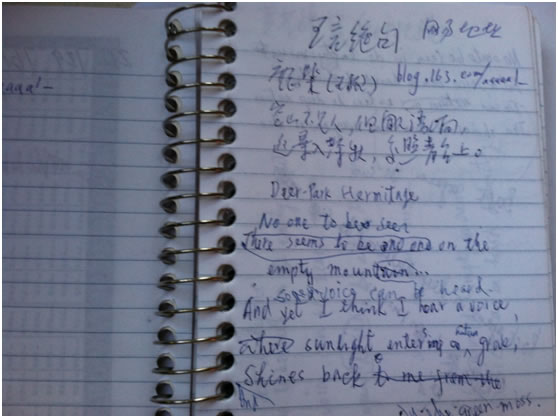 五言绝句 网易地址
鹿柴(王维) blog.163.com/
空山不见人,但闻人语响。
返景入深林,复照青苔上。
Deer-Park Hermitage
No one to be seen
There seems to be on the
empty mountain...
voice can be heard.
And yet I think I hear a voice,
where sunlight entering a grove,
Shines back to me from the
And green moss.